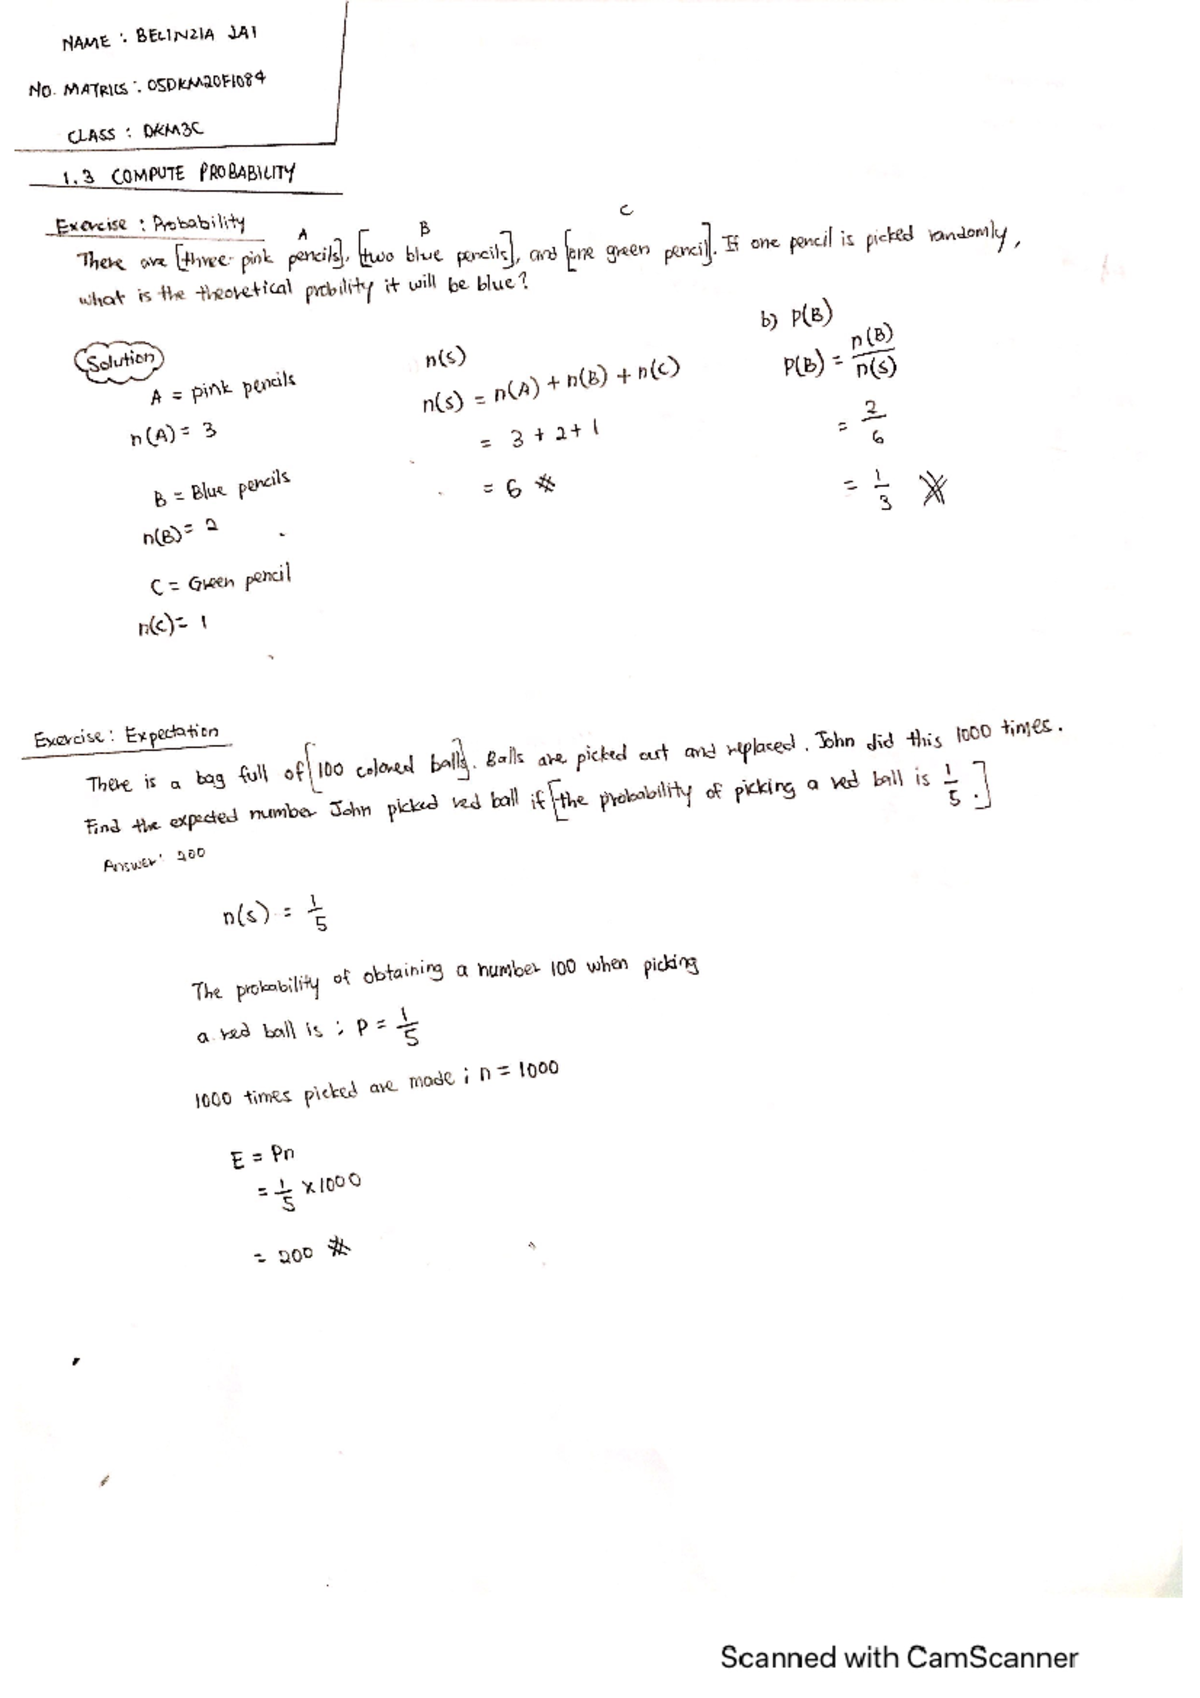 NAME : BELINZIA JAI
NO. MATRICS : 05DKM20F1084
CLASS : DKM3C
1.3 COMPUTE PROBABILITY
Exercise : Probability
A B C
There are [three pink pencils], [two blue pencils], and [one green pencil]. If one pencil is picked randomly,
what is the theoretical probility it will be blue?
Solution
A = pink pencils
n(A) = 3
B = Blue pencils
n(B) = 2
C = Green pencil
n(C) = 1
n(s)
n(s) = n(A) + n(B) + n(C)
= 3 + 2 + 1
= 6 #
b) P(B)
P(B) = n(B)/n(S)
= 2/6
= 1/3
Exercise : Expectation
There is a bag full of [100 colored balls]. Balls are picked out and replaced. John did this 1000 times.
Find the expected number John picked red ball if [the probability of picking a red ball is 1/5.]
Answer: 200
n(s) = 1/5
The probability of obtaining a number 100 when picking
a red ball is ; P = 1/5
1000 times picked are made ; n = 1000
E = Pn
= 1/5 x 1000
= 200 #
Scanned with CamScanner